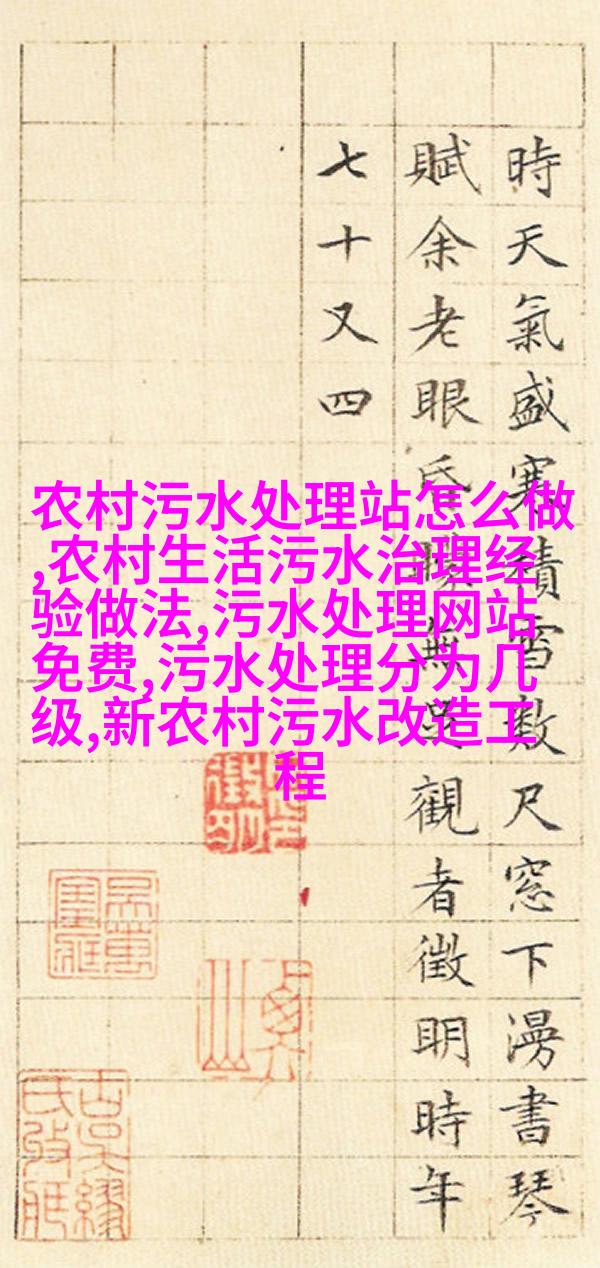 時天氣盛寒積雪數尺窓下漫書琴
賦余老眼昏無觀者徵明時年
七十又四
农村污水处理站怎么做
,农村生活污水治理经
验做法,污水处理网站
免费,污水处理分为几
级,新农村污水改造工
程